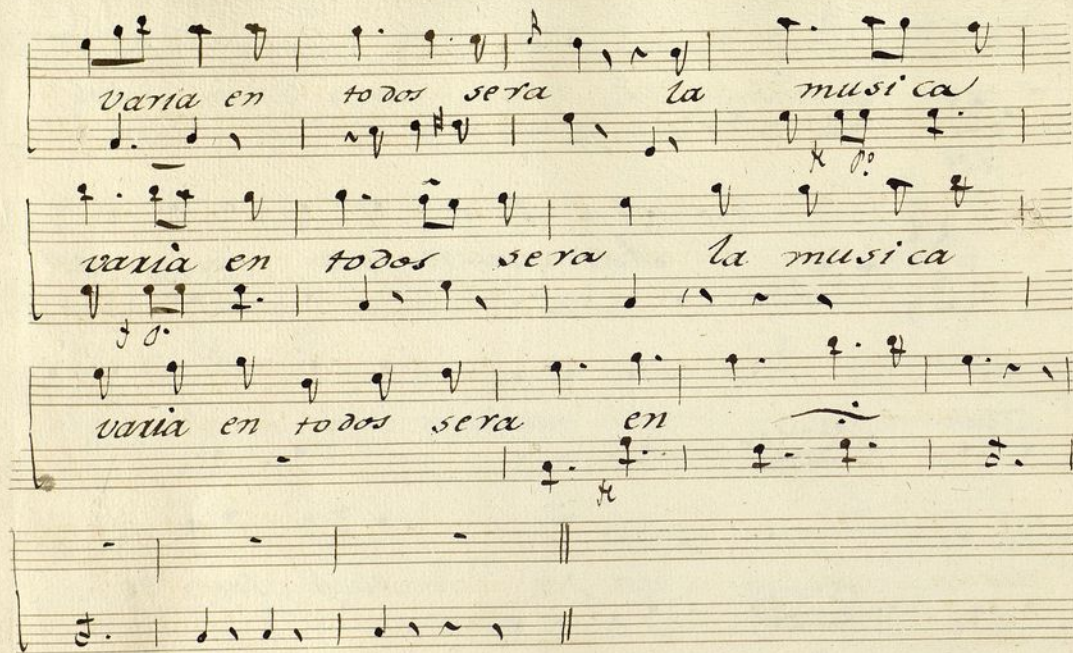 varia en todos sera la musica
varia en todos sera la musica
varia en todos sera en